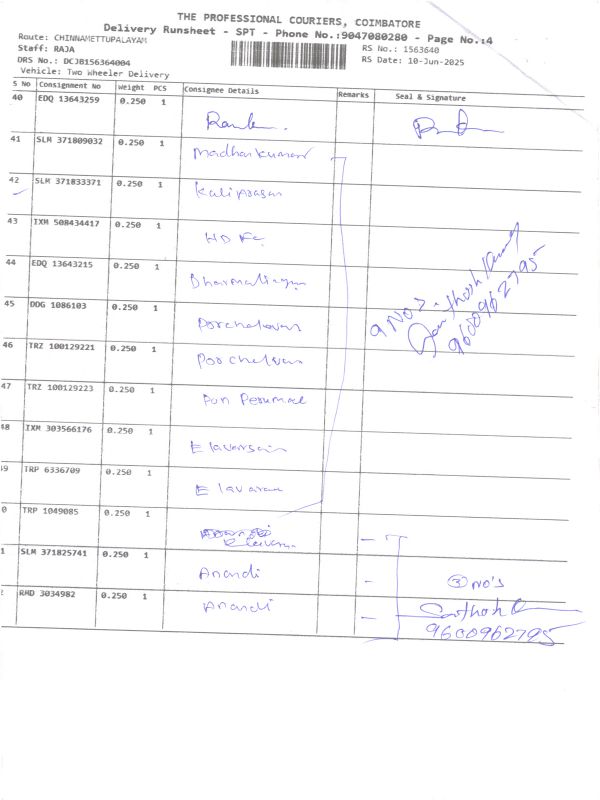 THE PROFESSIONAL COURIERS, COIMBATORE
Delivery Runsheet - SPT - Phone No.:9047080280 - Page No.:4
Route: CHINNAMETTUPALAYAM
Staff: RAJA
DRS No.: DCJB156364004
Vehicle: Two Wheeler Delivery
RS No.: 1563640
RS Date: 10-Jun-2025
S No Consignment No Weight PCS Consignee Details Remarks Seal & Signature
40 EDQ 13643259 0.250 1
41 SLM 371809032 0.250 1 Madhankumar
42 SLM 371833371 0.250 1 Kaliprasan
43 IXM 508434417 0.250 1 HDFC
44 EDQ 13643215 0.250 1 Dharmalingam
45 DDG 1086103 0.250 1 Porchelvan
46 TRZ 100129221 0.250 1 Porchelvan
47 TRZ 100129223 0.250 1 Pon Perumal
48 IXM 303566176 0.250 1 Elavarsan
49 TRP 6336709 0.250 1 Elavaran
9 Nos
9600962795
0 TRP 1049085 0.250 1
1 SLM 371825741 0.250 1 Anandi -
3 NO's
2 RMD 3034982 0.250 1 Anandi -
Santhosh
9600962795